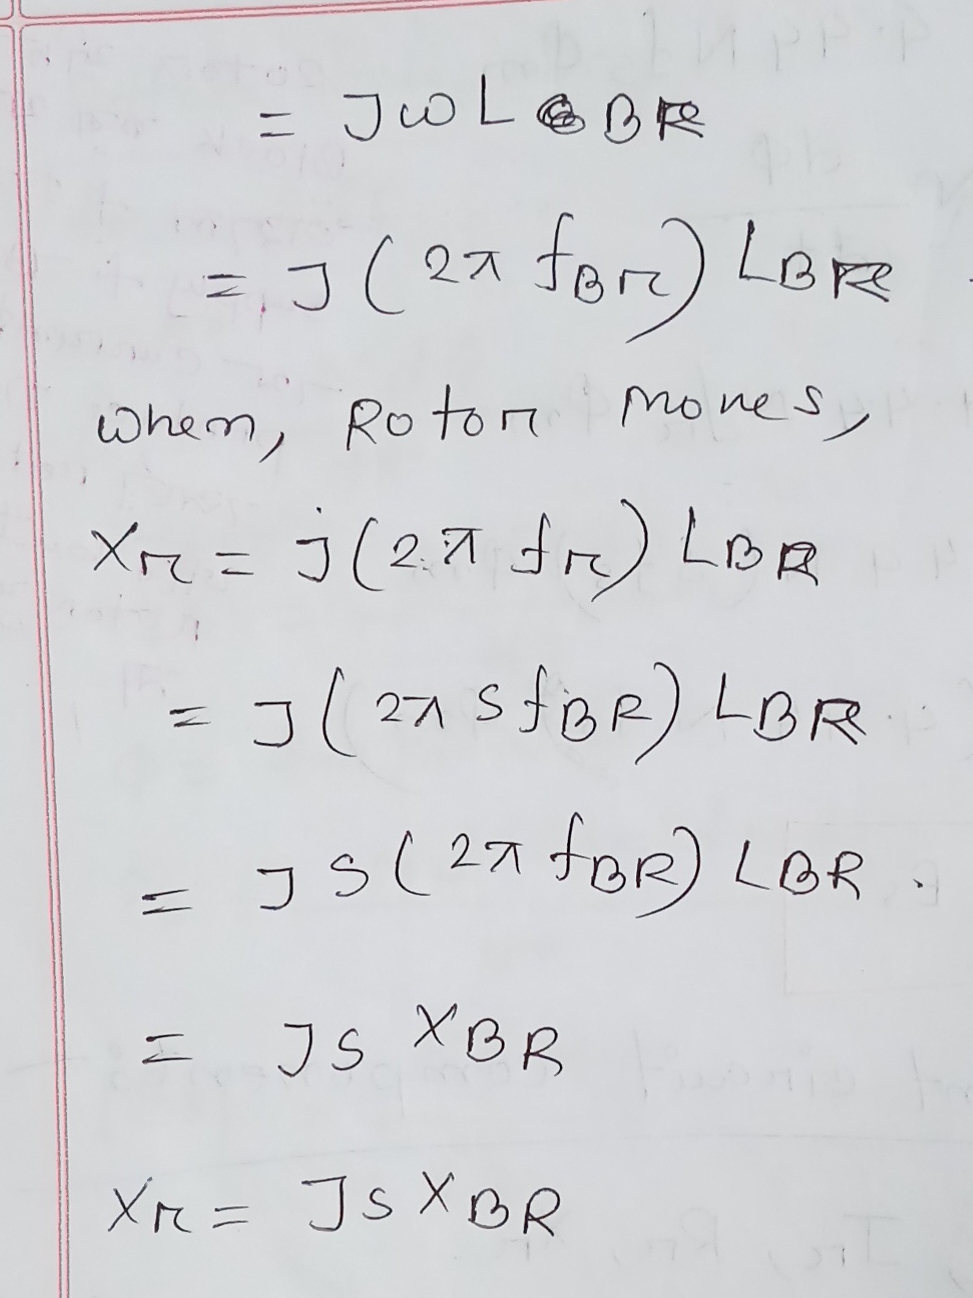 = JωL BR
= J(2π fBr) LBR
when, Rotor moves,
Xr = j(2π fr) LBR
= J(2π S fBR) LBR
= J S(2π fBR) LBR.
= JS XBR
Xr = JS XBR